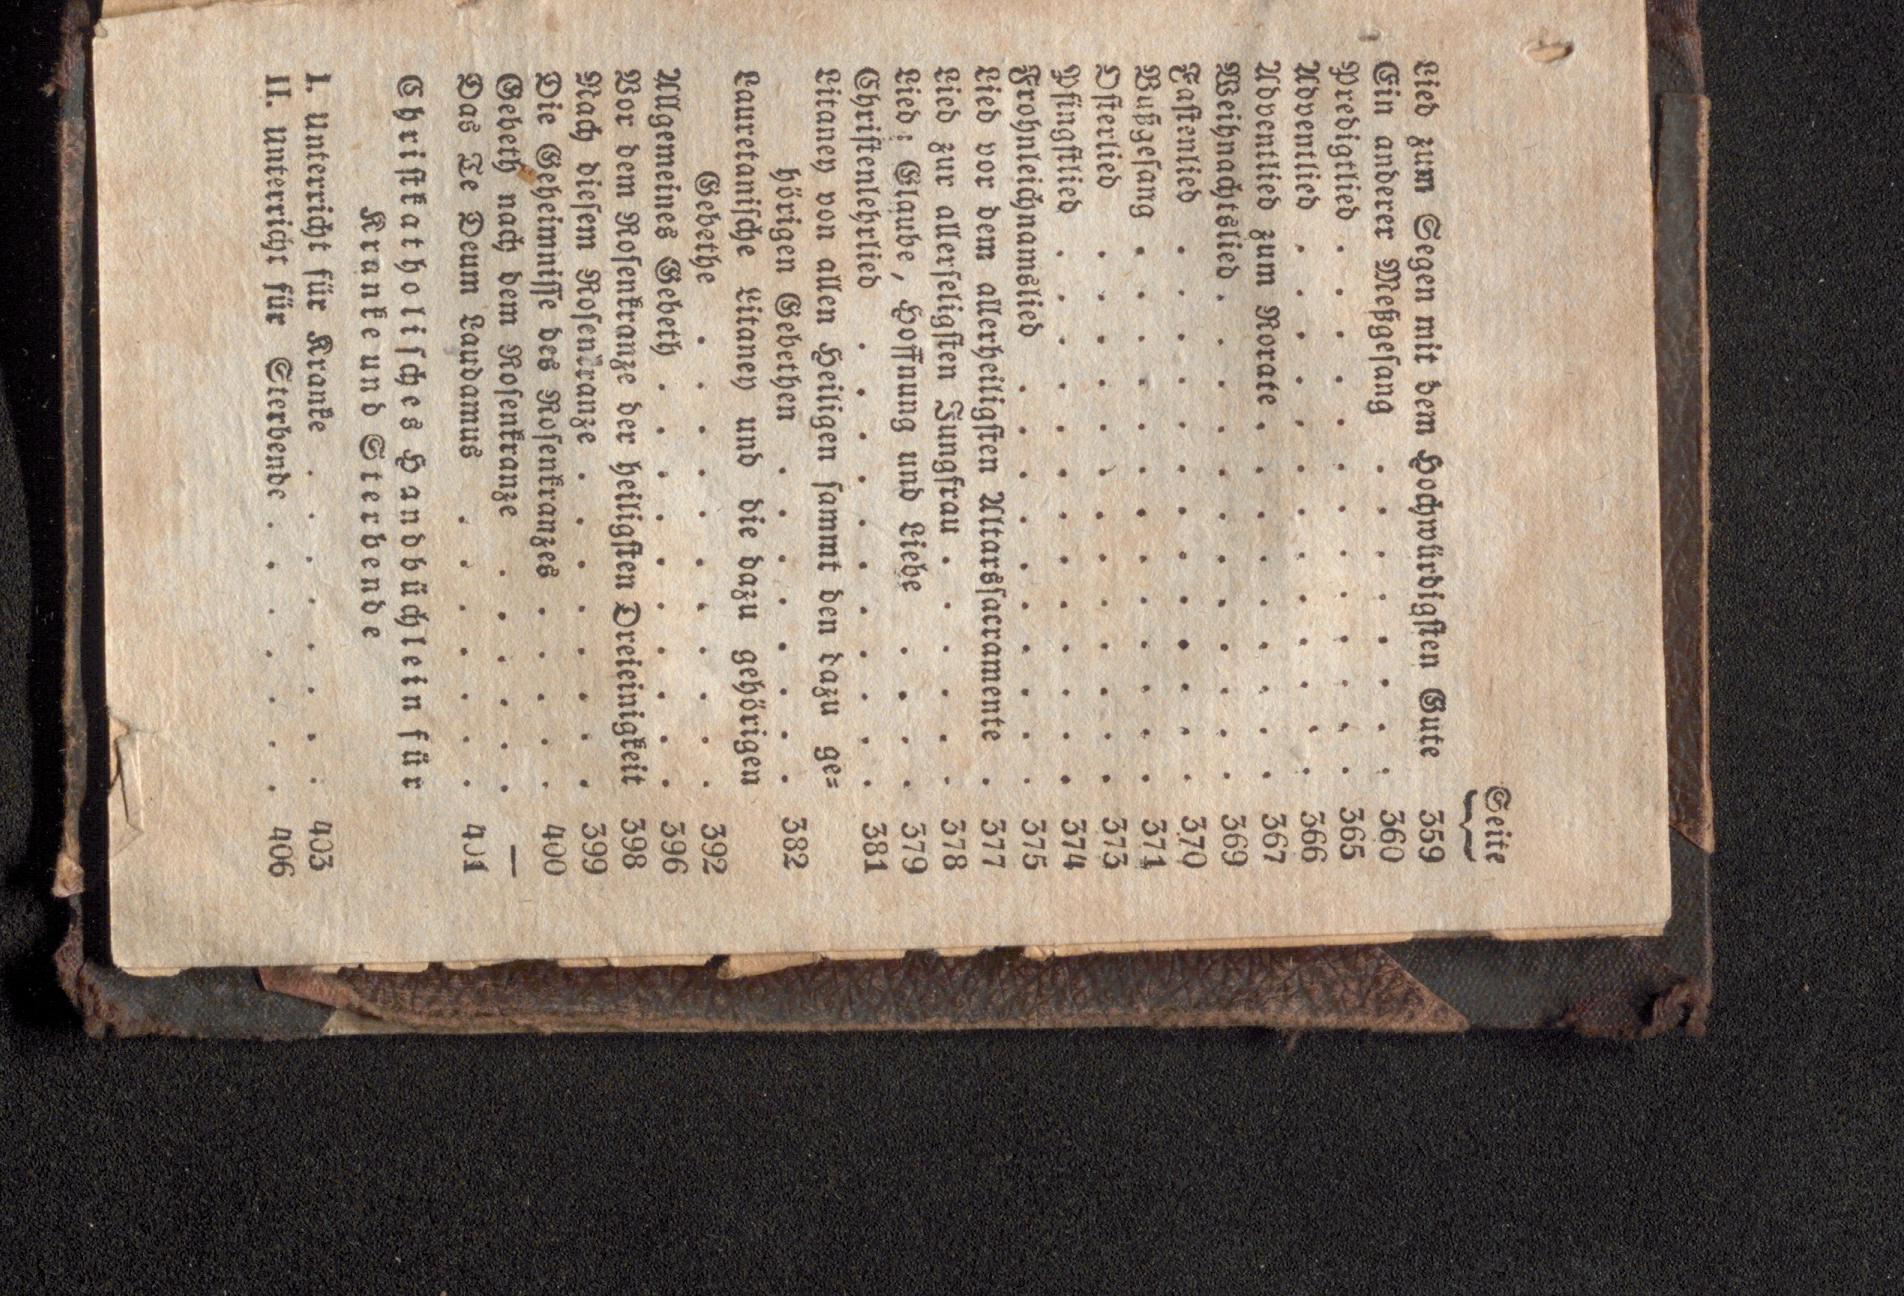 Seite
Lied zum Segen mit dem Hochwürdigsten Gute 359
Ein anderer Meßgesang . . . . . . . . 360
Predigtlied . . . . . . . . . . . . . 365
Adventlied . . . . . . . . . . . . . 366
Adventlied zum Rorate . . . . . . . . . 367
Weihnachtslied . . . . . . . . . . . . 369
Fastenlied . . . . . . . . . . . . . 370
Bußgesang . . . . . . . . . . . . . 371
Osterlied . . . . . . . . . . . . . 373
Pfingstlied . . . . . . . . . . . . . 374
Frohnleichnamslied . . . . . . . . . . 375
Lied vor dem allerheiligsten Altarssacramente . 377
Lied zur allerseligsten Jungfrau . . . . . . 378
Lied: Glaube, Hoffnung und Liebe . . . . 379
Christenlehrlied . . . . . . . . . . . 381
Litaney von allen Heiligen sammt den dazu ge=
hörigen Gebethen . . . . . . . . 382
Lauretanische Litaney und die dazu gehörigen
Gebethe . . . . . . . . . . . 392
Allgemeines Gebeth . . . . . . . . . . 396
Vor dem Rosenkranze der heiligsten Dreieinigkeit 398
Nach diesem Rosenkranze . . . . . . . . 399
Die Geheimnisse des Rosenkranzes . . . . . 400
Gebeth nach dem Rosenkranze . . . . . . —
Das Te Deum Laudamus . . . . . . . 401
Christkatholisches Handbüchlein für
Kranke und Sterbende
I. Unterricht für Kranke . . . . . . . . 403
II. Unterricht für Sterbende . . . . . . . 406